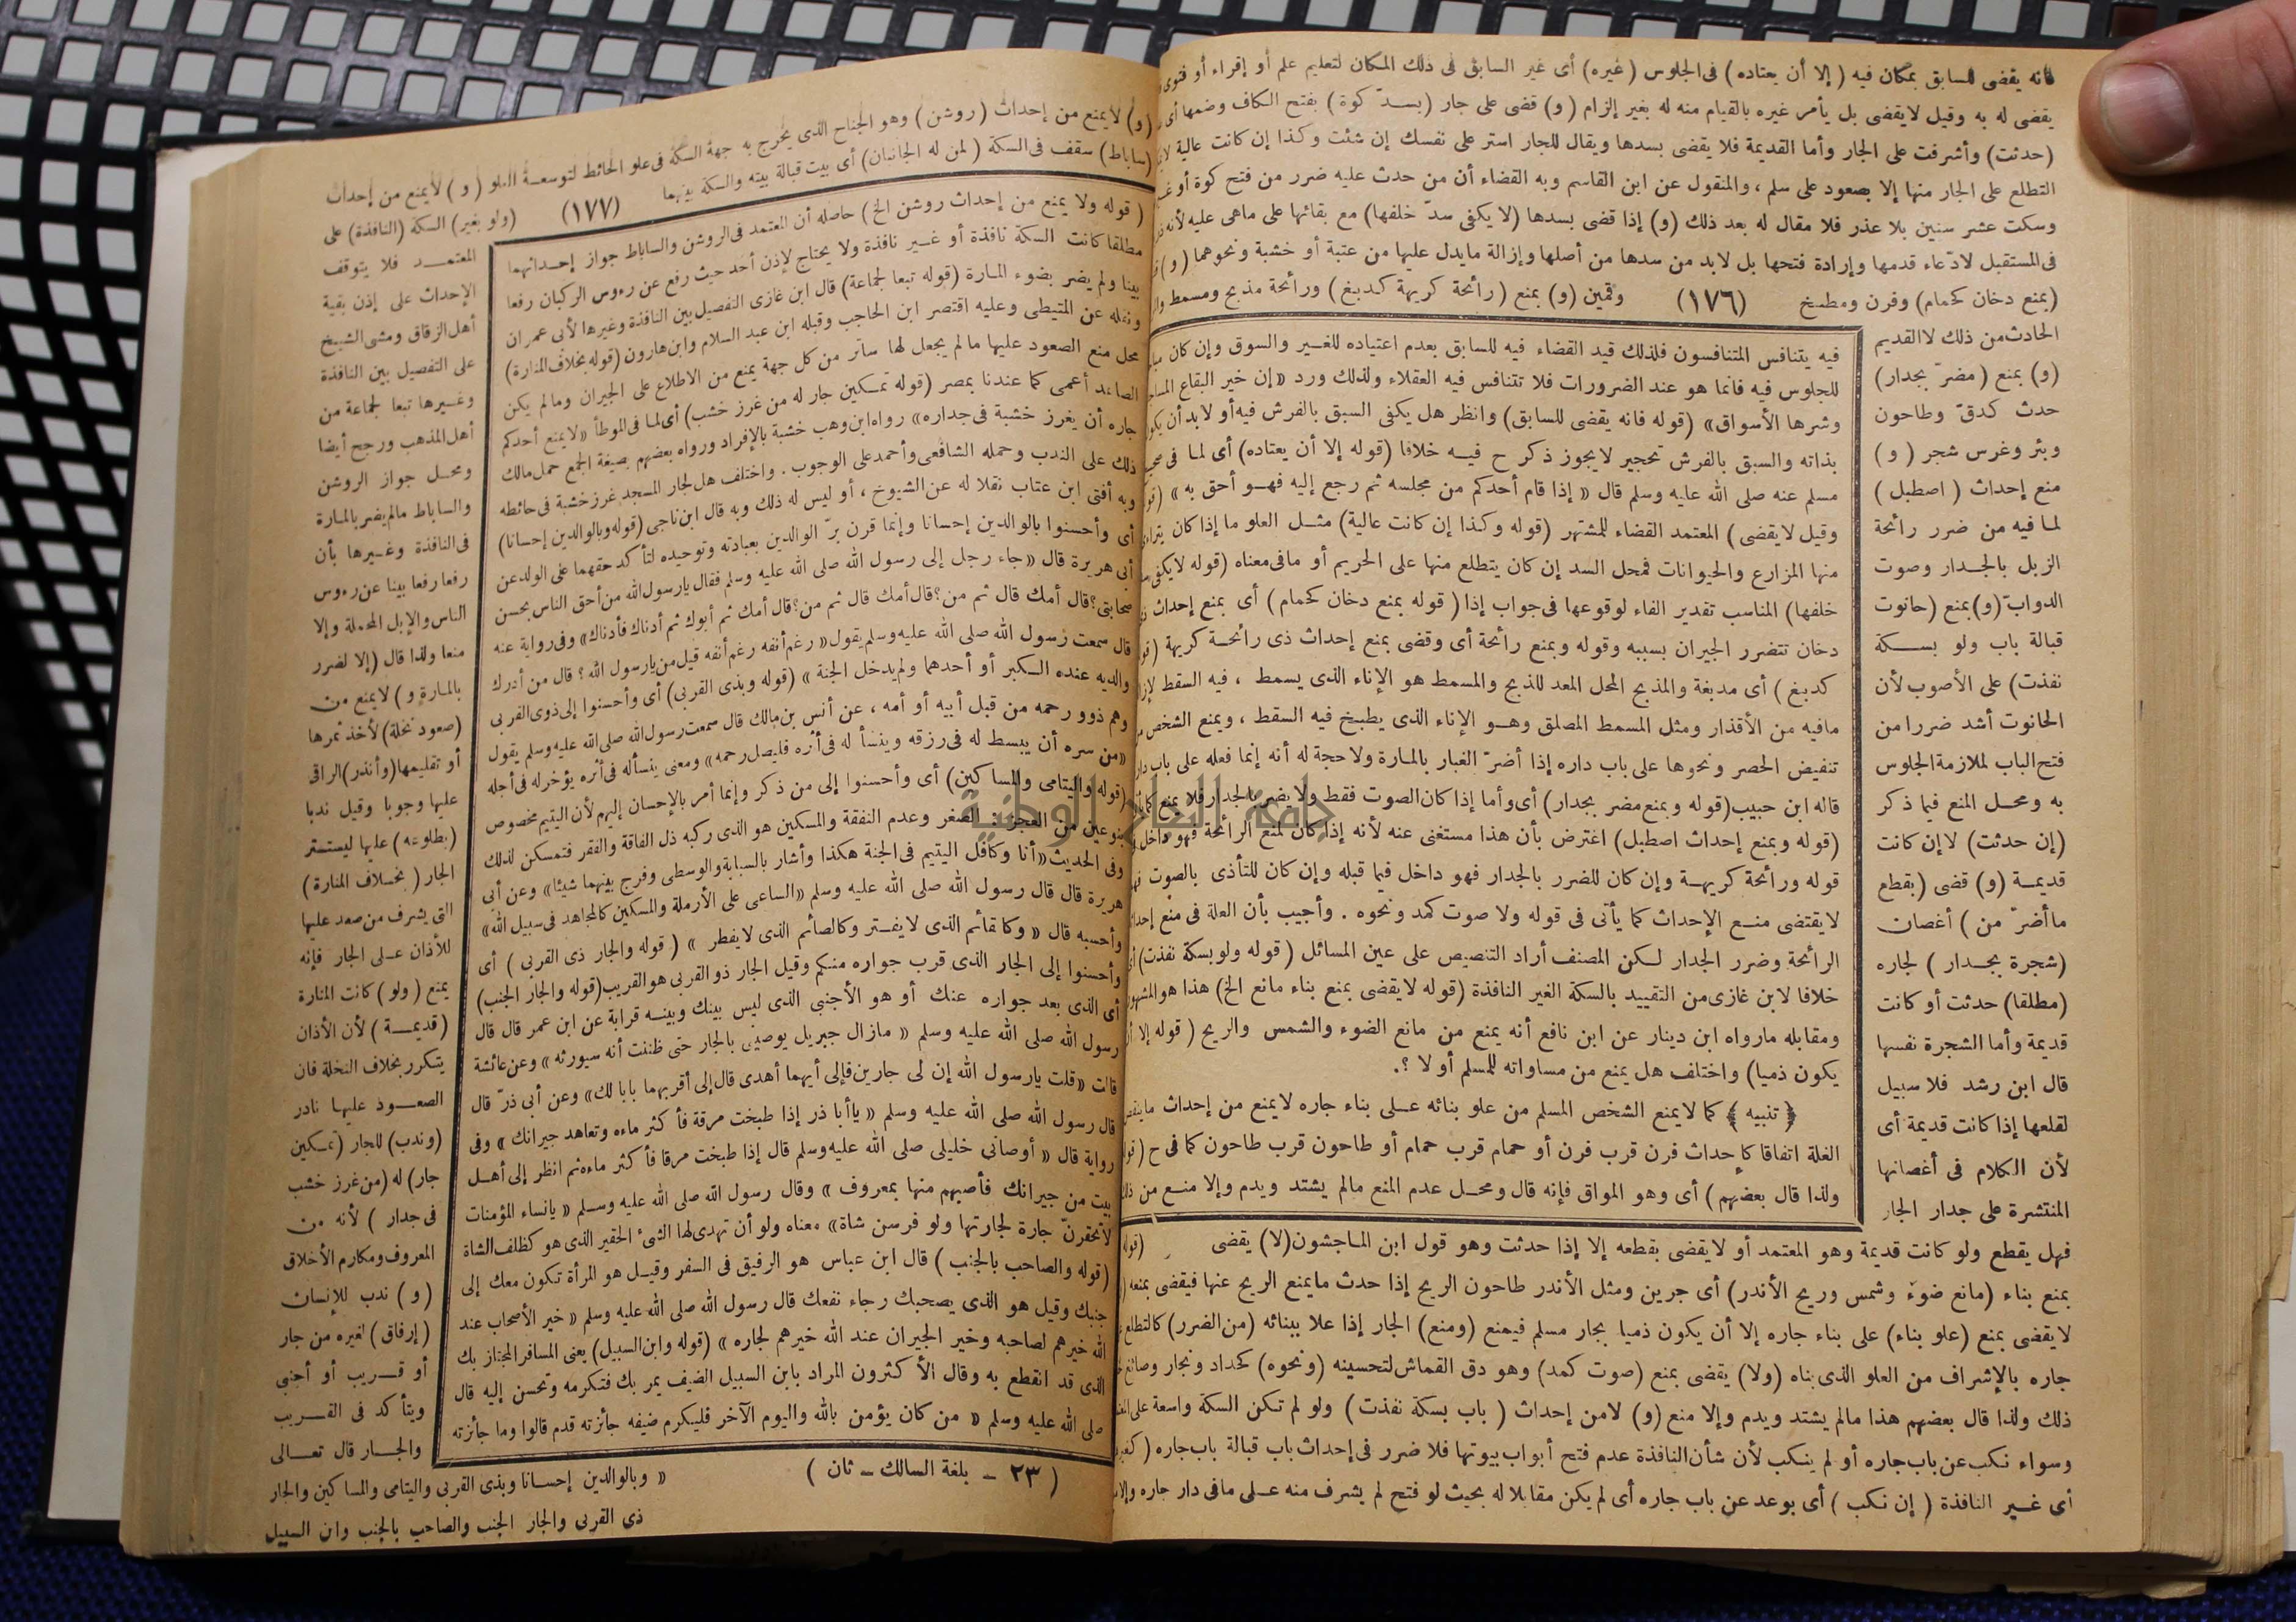 فانه يقضى للسابق بمكان فيه (إلا أن يعتاده) فى الجلوس (غيره) أى غير السابق فى ذلك المكان لتعليم علم أو إقراء أو فتوى
يقضى له به وقيل لايقضى بل يأمر غيره بالقيام منه له بغير إلزام (و) قضى على جار (بسدّ كوة) بفتح الكاف وضمها أى
(حدثت) وأشرفت على الجار وأما القديمة فلا يقضى بسدها ويقال للجار استر على نفسك إن شئت وكذا إن كانت عالية
التطلع على الجار منها إلا بصعود على سلم ، والمنقول عن ابن القاسم وبه القضاء أن من حدث عليه ضرر من فتح كوة أو
وسكت عشر سنين بلا عذر فلا مقال له بعد ذلك (و) إذا قضى بسدها (لا يكفى سدّ خلفها) مع بقائها على ماهى عليه لأنه
فى المستقبل لادّعاء قدمها وإرادة فتحها بل لابد من سدها من أصلها وإزالة مايدل عليها من عتبة أو خشبة ونحوهما (و)
(بمنع دخان كحمام) وفرن ومطبخ (١٧٦) وقمين (و) بمنع (رائحة كريهة كدبغ) ورائحة مذبح ومسمط
الحادث من ذلك لا القديم
(و) بمنع (مضرّ بجدار)
حدث كدقّ وطاحون
وبئر وغرس شجر (و)
منع إحداث (اصطبل)
لما فيه من ضرر رائحة
الزبل بالجدار وصوت
الدوابّ (و) بمنع (حانوت
قبالة باب ولو بسكة
نفذت) على الأصوب لأن
الحانوت أشد ضررا من
فتح الباب لملازمة الجلوس
به ومحل المنع فيما ذكر
(إن حدثت) لا إن كانت
قديمة (و) قضى (بقطع
ما أضرّ من) أغصان
(شجرة بجدار) لجاره
(مطلقا) حدثت أو كانت
قديمة وأما الشجرة نفسها
قال ابن رشد فلا سبيل
لقلعها إذا كانت قديمة أى
لأن الكلام فى أغصانها
المنتشرة على جدار الجار
فيه يتنافس المتنافسون فلذلك قيد القضاء فيه للسابق بعدم اعتياده للغير والسوق وإن كان
للجلوس فيه فانما هو عند الضرورات فلا تتنافس فيه العقلاء ولذلك ورد «إن خير البقاع
وشرها الأسواق» (قوله فانه يقضى للسابق) وانظر هل يكفى السبق بالفرش فيه أو لابد أن
بذاته والسبق بالفرش تحجير لايجوز ذكر ح فيه خلافا (قوله إلا أن يعتاده) أى لما فى
مسلم عنه صلى الله عليه وسلم قال «إذا قام أحدكم من مجلسه ثم رجع إليه فهو أحق به»
وقيل لايقضى) المعتمد القضاء للمشتهر (قوله وكذا إن كانت عالية) مثل العلو ما إذا كان
منها المزارع والحيوانات فمحل السد إن كان يتطلع منها على الحريم أو مافى معناه (قوله لايكفى
خلفها) المناسب تقدير الفاء لوقوعها فى جواب إذا (قوله بمنع دخان كحمام) أى بمنع إحداث
دخان تتضرر الجيران بسببه وقوله وبمنع رائحة أى وقضى بمنع إحداث ذى رائحة كريهة
كدبغ) أى مدبغة والمذبح المحل المعد للذبح والمسمط هو الإناء الذى يسمط ، فيه السقط
مافيه من الأقذار ومثل المسمط المصلق وهو الإناء الذى يطبخ فيه السقط ، ويمنع الشخص
تنفيض الحصر ونحوها على باب داره إذا أضرّ الغبار بالمارة ولا حجة له أنه إنما فعله على باب
قاله ابن حبيب (قوله وبمنع مضر بجدار) أى وأما إذا كان الصوت فقط ولا يضر بالجدار فلا يمنع
(قوله وبمنع إحداث اصطبل) اعترض بأن هذا مستغنى عنه لأنه إذا كان لمنع الرائحة فهو داخل
قوله ورائحة كريهة وإن كان للضرر بالجدار فهو داخل فيما قبله وإن كان للتأذى بالصوت
لايقتضى منع الإحداث كما يأتى فى قوله ولا صوت كمد ونحوه . وأجيب بأن العلة فى منع
الرائحة وضرر الجدار لكن المصنف أراد التنصيص على عين المسائل (قوله ولو بسكة نفذت)
خلافا لابن غازى من التقييد بالسكة الغير النافذة (قوله لايقضى بمنع بناء مانع الخ) هذا هو المشهور
ومقابله مارواه ابن دينار عن ابن نافع أنه يمنع من مانع الضوء والشمس والريح (قوله إلا
يكون ذميا) واختلف هل يمنع من مساواته للمسلم أو لا ؟.
﴿تنبيه﴾ كما لايمنع الشخص المسلم من علو بنائه على بناء جاره لايمنع من إحداث
الغلة اتفاقا كإحداث فرن قرب فرن أو حمام قرب حمام أو طاحون قرب طاحون كما فى ح
ولذا قال بعضهم) أى وهو المواق فإنه قال ومحل عدم المنع مالم يشتد ويدم وإلا منع من
فهل يقطع ولو كانت قديمة وهو المعتمد أو لايقضى بقطعه إلا إذا حدثت وهو قول ابن الماجشون (لا) يقضى
بمنع بناء (مانع ضوء وشمس وريح الأندر) أى جرين ومثل الأندر طاحون الريح إذا حدث مايمنع الريح عنها فيقضى بمنعه
لايقضى بمنع (علو بناء) على بناء جاره إلا أن يكون ذميا بجار مسلم فيمنع (ومنع) الجار إذا علا ببنائه (من الضرر) كالتطلع
جاره بالإشراف من العلو الذى بناه (ولا) يقضى بمنع (صوت كمد) وهو دق القماش لتحسينه (ونحوه) كحداد ونجار وصائغ
ذلك ولذا قال بعضهم هذا مالم يشتد ويدم وإلا منع (و) لا من إحداث (باب بسكة نفذت) ولو لم تكن السكة واسعة
وسواء نكب عن باب جاره أو لم ينكب لأن شأن النافذة عدم فتح أبواب بيوتها فلا ضرر فى إحداث باب قبالة باب جاره
أى غير النافذة (إن نكب) أى بوعد عن باب جاره أى لم يكن مقابلا له بحيث لو فتح لم يشرف منه على مافى دار جاره
(و) لايمنع من إحداث (روشن) وهو الجناح الذى يخرج به جهة السكة فى علو الحائط لتوسعة العلو (و) لايمنع من إحداث
(ساباط) سقف فى السكة (لمن له الجانبان) أى بيت قبالة بيته والسكة بينهما (١٧٧) (ولو بغير) السكة (النافذة) على
المعتمد فلا يتوقف
الإحداث على إذن بقية
أهل الزقاق ومشى الشيخ
على التفصيل بين النافذة
وغيرها تبعا لجماعة من
أهل المذهب ورجح أيضا
ومحل جواز الروشن
والساباط مالم يضر بالمارة
فى النافذة وغيرها بأن
رفعا رفعا بينا عن رءوس
الناس والإبل المحملة وإلا
منعا ولذا قال (إلا لضرر
بالمارة و) لايمنع من
(صعود نخلة) لأخذ ثمرها
أو تقليمها (وأنذر) الراقى
عليها وجوبا وقيل ندبا
(بطلوعه) عليها ليستتر
الجار (بخلاف المنارة)
التى يشرف من صعد عليها
للأذان على الجار فإنه
يمنع (ولو) كانت المنارة
(قديمة) لأن الأذان
يتكرر بخلاف النخلة فان
الصعود عليها نادر
(وندب) للجار (تمكين
جار) له (من غرز خشب
فى جدار) لأنه من
المعروف ومكارم الأخلاق
(و) ندب للإنسان
(إرفاق) لغيره من جار
أو قريب أو أجنبى
ويتأكد فى القريب
والجار قال تعالى
(قوله ولا يمنع من إحداث روشن الخ) حاصله أن المعتمد فى الروشن والساباط جواز إحداثهما
مطلقا كانت السكة نافذة أو غير نافذة ولا يحتاج لإذن أحد حيث رفع عن رءوس الركبان رفعا
بينا ولم يضر بضوء المارة (قوله تبعا لجماعة) قال ابن غازى التفصيل بين النافذة وغيرها لأبى عمران
ونقله عن المتيطى وعليه اقتصر ابن الحاجب وقبله ابن عبد السلام وابن هارون (قوله بخلاف المنارة)
محل منع الصعود عليها مالم يجعل لها ساتر من كل جهة يمنع من الاطلاع على الجيران ومالم يكن
الصاعد أعمى كما عندنا بمصر (قوله تمكين جار له من غرز خشب) أى لما فى الموطأ «لايمنع أحدكم
جاره أن يغرز خشبة فى جداره» رواه ابن وهب خشبة بالإفراد ورواه بعضهم بصيغة الجمع حمل مالك
ذلك على الندب وحمله الشافعى وأحمد على الوجوب . واختلف هل لجار المسجد غرز خشبة فى حائطه
وبه أفتى ابن عتاب نقلا له عن الشيوخ ، أو ليس له ذلك وبه قال ابن ناجى (قوله وبالوالدين إحسانا)
أى وأحسنوا بالوالدين إحسانا وإنما قرن برّ الوالدين بعبادته وتوحيده لتأكد حقهما على الولد عن
أبى هريرة قال «جاء رجل إلى رسول الله صلى الله عليه وسلم فقال يارسول الله من أحق الناس بحسن
صحابتى؟ قال أمك قال ثم من؟ قال أمك قال ثم من؟ قال أمك ثم أبوك ثم أدناك فأدناك» وفى رواية عنه
قال سمعت رسول الله صلى الله عليه وسلم يقول «رغم أنفه رغم أنفه قيل من يارسول الله؟ قال من أدرك
والديه عنده الكبر أو أحدهما ولم يدخل الجنة» (قوله وبذى القربى) أى وأحسنوا إلى ذوى القربى
وهم ذوو رحمه من قبل أبيه أو أمه ، عن أنس بن مالك قال سمعت رسول الله صلى الله عليه وسلم يقول
«من سره أن يبسط له فى رزقه وينسأ له فى أثره فليصل رحمه» ومعنى ينسأ له فى أثره يؤخر له فى أجله
(قوله واليتامى والمساكين) أى وأحسنوا إلى من ذكر وإنما أمر بالإحسان إليهم لأن اليتيم مخصوص
بنوعين من العجز : الصغر وعدم النفقة والمسكين هو الذى ركبه ذل الفاقة والفقر فتمسكن لذلك
وفى الحديث «أنا وكافل اليتيم فى الجنة هكذا وأشار بالسبابة والوسطى وفرج بينهما شيئا» وعن أبى
هريرة قال قال رسول الله صلى الله عليه وسلم «الساعى على الأرملة والمسكين كالمجاهد فى سبيل الله»
وأحسبه قال «وكالقائم الذى لايفتر وكالصائم الذى لايفطر» (قوله والجار ذى القربى) أى
وأحسنوا إلى الجار الذى قرب جواره منكم وقيل الجار ذو القربى هو القريب (قوله والجار الجنب)
أى الذى بعد جواره عنك أو هو الأجنبى الذى ليس بينك وبينه قرابة عن ابن عمر قال قال
رسول الله صلى الله عليه وسلم «مازال جبريل يوصينى بالجار حتى ظننت أنه سيورثه» وعن عائشة
قالت «قلت يارسول الله إن لى جارين فإلى أيهما أهدى قال إلى أقربهما بابا لك» وعن أبى ذرّ قال
قال رسول الله صلى الله عليه وسلم «ياأبا ذر إذا طبخت مرقة فأكثر ماءه وتعاهد جيرانك» وفى
رواية قال «أوصانى خليلى صلى الله عليه وسلم قال إذا طبخت مرقا فأكثر ماءه ثم انظر إلى أهل
بيت من جيرانك فأصبهم منها بمعروف» وقال رسول الله صلى الله عليه وسلم «يانساء المؤمنات
لاتحقرنّ جارة لجارتها ولو فرسن شاة» معناه ولو أن تهدى لها الشىء الحقير الذى هو كظلف الشاة
(قوله والصاحب بالجنب) قال ابن عباس هو الرفيق فى السفر وقيل هو المرأة تكون معك إلى
جنبك وقيل هو الذى يصحبك رجاء نفعك قال رسول الله صلى الله عليه وسلم «خير الأصحاب عند
الله خيرهم لصاحبه وخير الجيران عند الله خيرهم لجاره» (قوله وابن السبيل) يعنى المسافر المجتاز بك
الذى قد انقطع به وقال الأكثرون المراد بابن السبيل الضيف يمر بك فتكرمه وتحسن إليه قال
صلى الله عليه وسلم «من كان يؤمن بالله واليوم الآخر فليكرم ضيفه جائزته قدم قالوا وما جائزته
(٢٣ - بلغة السالك - ثان)
«وبالوالدين إحسانا وبذى القربى واليتامى والمساكين والجار
ذى القربى والجار الجنب والصاحب بالجنب وابن السبيل
جامعة النجاح الوطنية